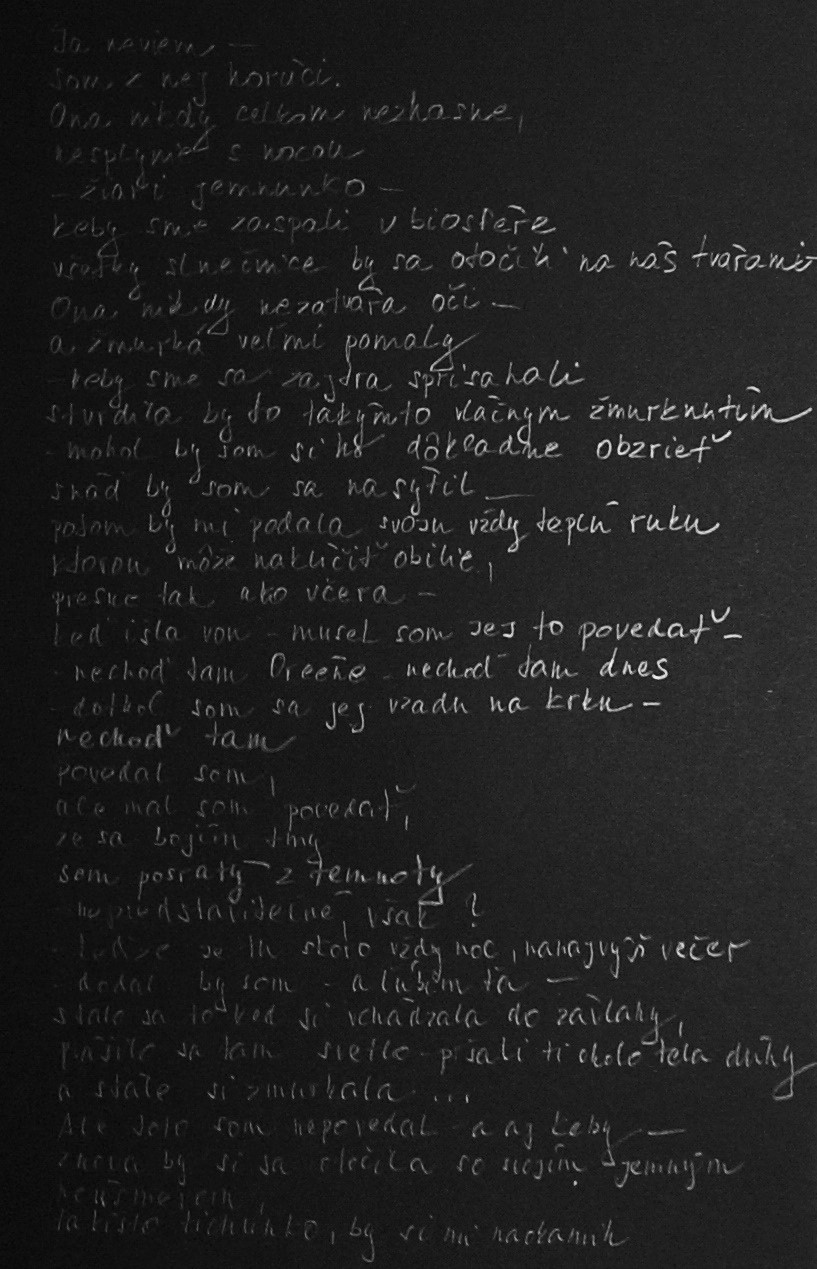 Ja neviem –
som z nej horúci.
Ona nikdy celkom nezhasne,
nesplynie s nocou
– žiari jemnunko –
keby sme zaspali v biosfére
všetky slnečnice by sa otočili na nás tvárami
Ona nikdy nezatvára oči –
a žmurká veľmi pomaly
– keby sme sa zajtra sprisahali
stvrdila by to takýmto vláčnym žmurknutím
– mohol by som si ho dôkladne obzrieť
snáď by som sa nasýtil –
potom by mi podala svoju vždy teplú ruku
ktorou môže naklíčiť obilie,
presne tak ako včera –
keď išla von – musel som jej to povedať –
– nechoď tam – nechoď tam dnes
– dotkol som sa jej vzadu na krku –
nechoď tam
povedal som,
ale mal som povedať,
že sa bojím tmy
som posratý z temnoty
nepredstaviteľné, však?
– je tu skoro vždy noc, nanajvýš večer
– dodal by som – a ľúbim ťa –
stalo sa to keď si vchádzala do závlahy,
prášilo sa tam svetlo – pršali ti okolo tela dúhy
a stále si žmurkala ...
Ale toto som nepovedal – a aj keby –
znova by si sa otočila so svojím jemným
neúsmevom,
takisto tichunko, by si mi